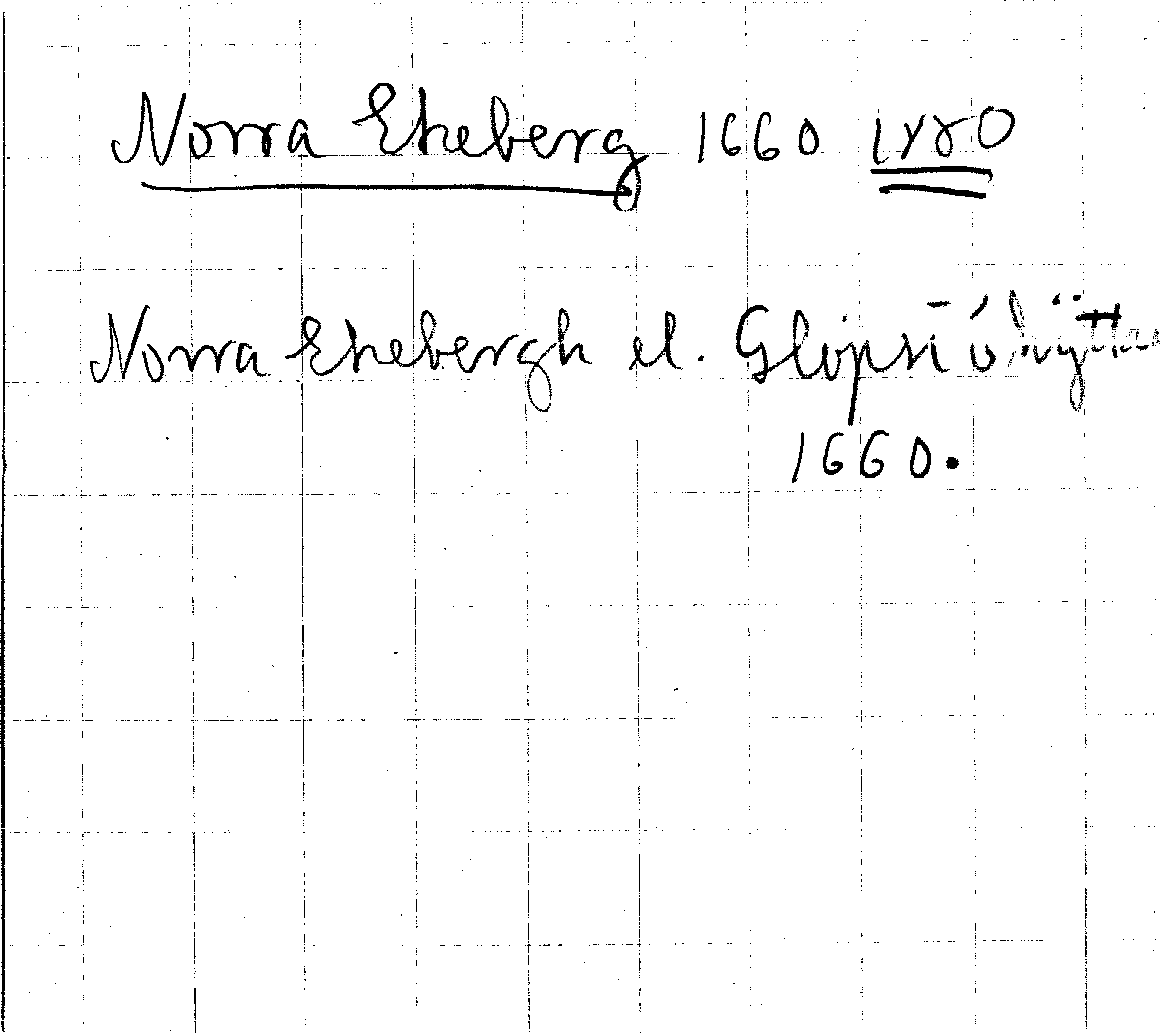 Norra Ekeberg 1660 1780
Norra Ekebergh el. Glipsiöhÿttan
1660.